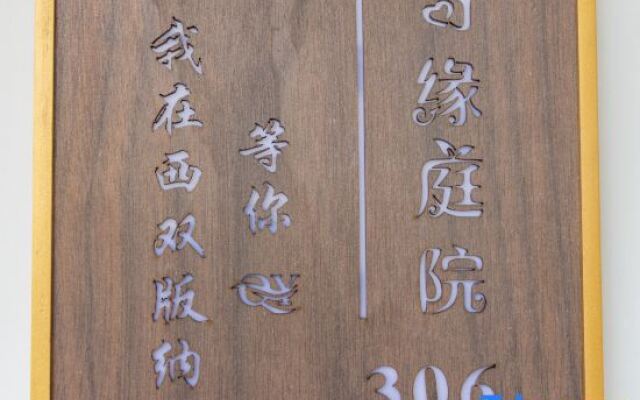 我在西双版纳
等你
缘庭院
306